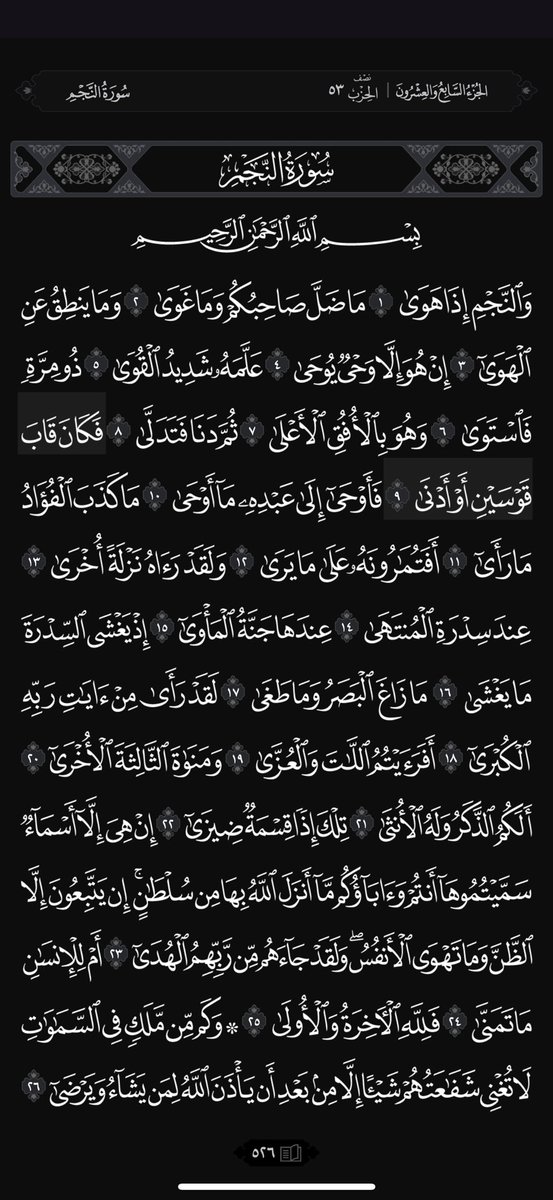 سُورَةُ النَّجْمِ
الجُزْءُ السَّابِعُ وَالعِشْرُونَ | نِصْفُ الحِزْبِ ٥٣
سُورَةُ النَّجْمِ
بِسْمِ ٱللَّهِ ٱلرَّحْمَٰنِ ٱلرَّحِيمِ
وَٱلنَّجْمِ إِذَا هَوَىٰ ١ مَا ضَلَّ صَاحِبُكُمْ وَمَا غَوَىٰ ٢ وَمَا يَنطِقُ عَنِ
ٱلْهَوَىٰٓ ٣ إِنْ هُوَ إِلَّا وَحْىٌ يُوحَىٰ ٤ عَلَّمَهُۥ شَدِيدُ ٱلْقُوَىٰ ٥ ذُو مِرَّةٍ
فَٱسْتَوَىٰ ٦ وَهُوَ بِٱلْأُفُقِ ٱلْأَعْلَىٰ ٧ ثُمَّ دَنَا فَتَدَلَّىٰ ٨ فَكَانَ قَابَ
قَوْسَيْنِ أَوْ أَدْنَىٰ ٩ فَأَوْحَىٰٓ إِلَىٰ عَبْدِهِۦ مَآ أَوْحَىٰ ١٠ مَا كَذَبَ ٱلْفُؤَادُ
مَا رَأَىٰٓ ١١ أَفَتُمَٰرُونَهُۥ عَلَىٰ مَا يَرَىٰ ١٢ وَلَقَدْ رَءَاهُ نَزْلَةً أُخْرَىٰ ١٣
عِندَ سِدْرَةِ ٱلْمُنتَهَىٰ ١٤ عِندَهَا جَنَّةُ ٱلْمَأْوَىٰٓ ١٥ إِذْ يَغْشَى ٱلسِّدْرَةَ
مَا يَغْشَىٰ ١٦ مَا زَاغَ ٱلْبَصَرُ وَمَا طَغَىٰ ١٧ لَقَدْ رَأَىٰ مِنْ ءَايَٰتِ رَبِّهِ
ٱلْكُبْرَىٰٓ ١٨ أَفَرَءَيْتُمُ ٱللَّٰتَ وَٱلْعُزَّىٰ ١٩ وَمَنَوٰةَ ٱلثَّالِثَةَ ٱلْأُخْرَىٰٓ ٢٠
أَلَكُمُ ٱلذَّكَرُ وَلَهُ ٱلْأُنثَىٰ ٢١ تِلْكَ إِذًا قِسْمَةٌ ضِيزَىٰٓ ٢٢ إِنْ هِىَ إِلَّآ أَسْمَآءٌ
سَمَّيْتُمُوهَآ أَنتُمْ وَءَابَآؤُكُم مَّآ أَنزَلَ ٱللَّهُ بِهَا مِن سُلْطَٰنٍ ۚ إِن يَتَّبِعُونَ إِلَّا
ٱلظَّنَّ وَمَا تَهْوَى ٱلْأَنفُسُ ۖ وَلَقَدْ جَآءَهُم مِّن رَّبِّهِمُ ٱلْهُدَىٰٓ ٢٣ أَمْ لِلْإِنسَٰنِ
مَا تَمَنَّىٰ ٢٤ فَلِلَّهِ ٱلْءَاخِرَةُ وَٱلْأُولَىٰ ٢٥ ۞ وَكَم مِّن مَّلَكٍ فِى ٱلسَّمَٰوَٰتِ
لَا تُغْنِى شَفَٰعَتُهُمْ شَيْـًٔا إِلَّا مِنۢ بَعْدِ أَن يَأْذَنَ ٱللَّهُ لِمَن يَشَآءُ وَيَرْضَىٰٓ ٢٦
٥٢٦